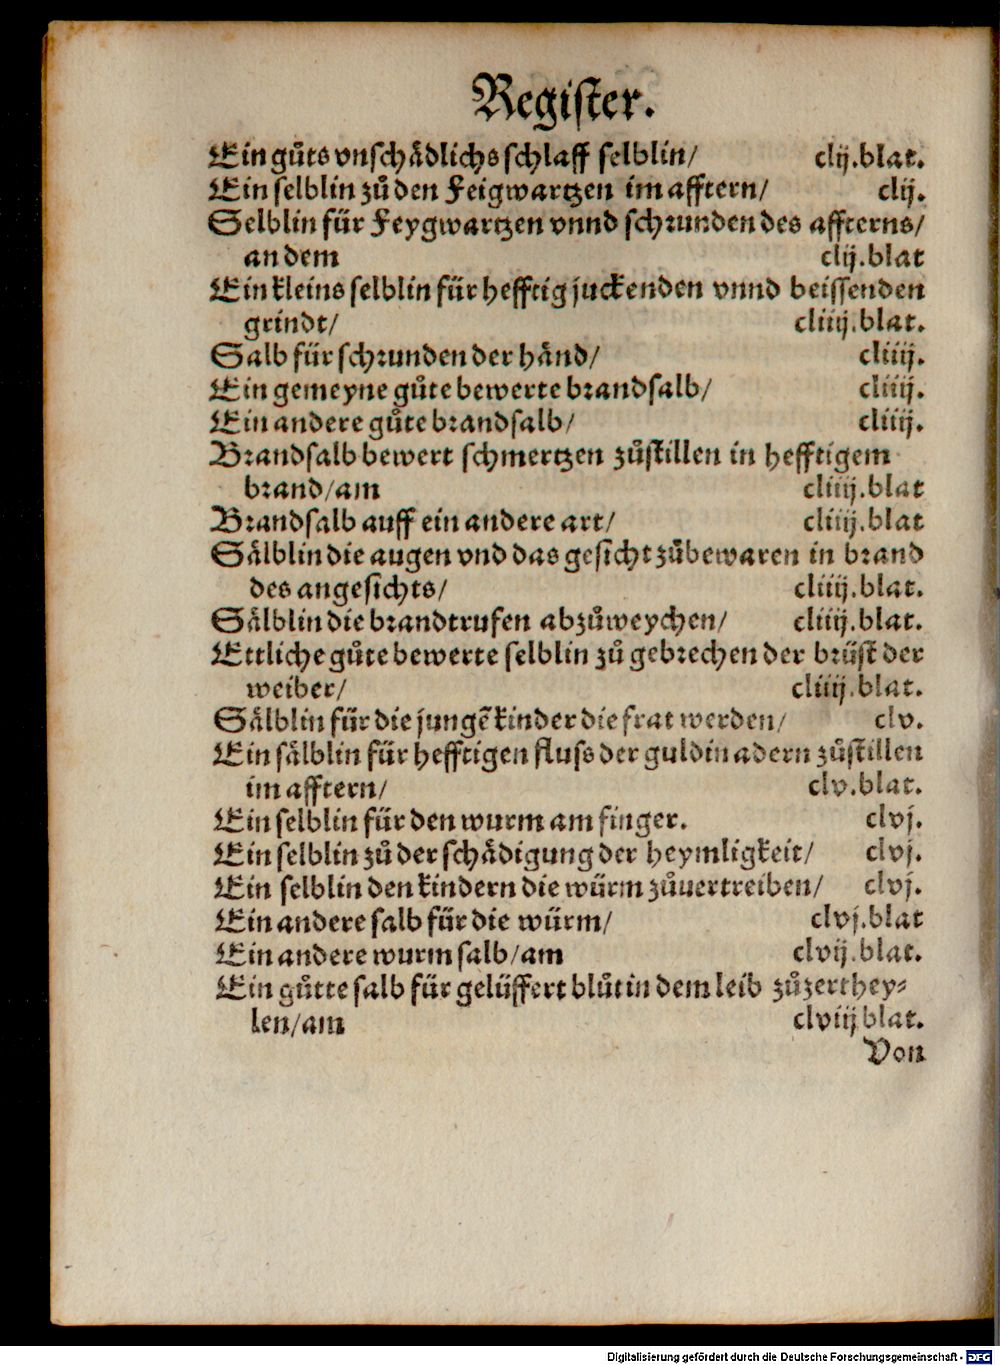 Register.
Ein gůts vnschädlichs schlaff selblin/ clij.blat.
Ein selblin zů den Feigwartzen im afftern/ clij.
Selblin für Feygwartzen vnnd schrunden des affterns/
an dem clij.blat
Ein kleins selblin für hefftig juckenden vnnd beissenden
grindt/ cliiij.blat.
Salb für schrunden der händ/ cliiij.
Ein gemeyne gůte bewerte brandsalb/ cliiij.
Ein andere gůte brandsalb/ cliiij.
Brandsalb bewert schmertzen zůstillen in hefftigem
brand/am cliiij.blat
Brandsalb auff ein andere art/ cliiij.blat
Sälblin die augen vnd das gesicht zůbewaren in brand
des angesichts/ cliiij.blat.
Sälblin die brandtrufen abzůweychen/ cliiij.blat.
Ettliche gůte bewerte selblin zů gebrechen der brüst der
weiber/ cliiij.blat.
Sälblin für die jungē kinder die frat werden/ clv.
Ein sälblin für hefftigen fluss der guldin adern zůstillen
im afftern/ clv.blat.
Ein selblin für den wurm am finger. clvj.
Ein selblin zů der schädigung der heymligkeit/ clvj.
Ein selblin den kindern die würm zůuertreiben/ clvj.
Ein andere salb für die würm/ clvj.blat
Ein andere wurm salb/am clvij.blat.
Ein gůtte salb für gelüffert blůt in dem leib zůzerthey⸗
len/am clviij blat.
Von
Digitalisierung gefördert durch die Deutsche Forschungsgemeinschaft - DFG